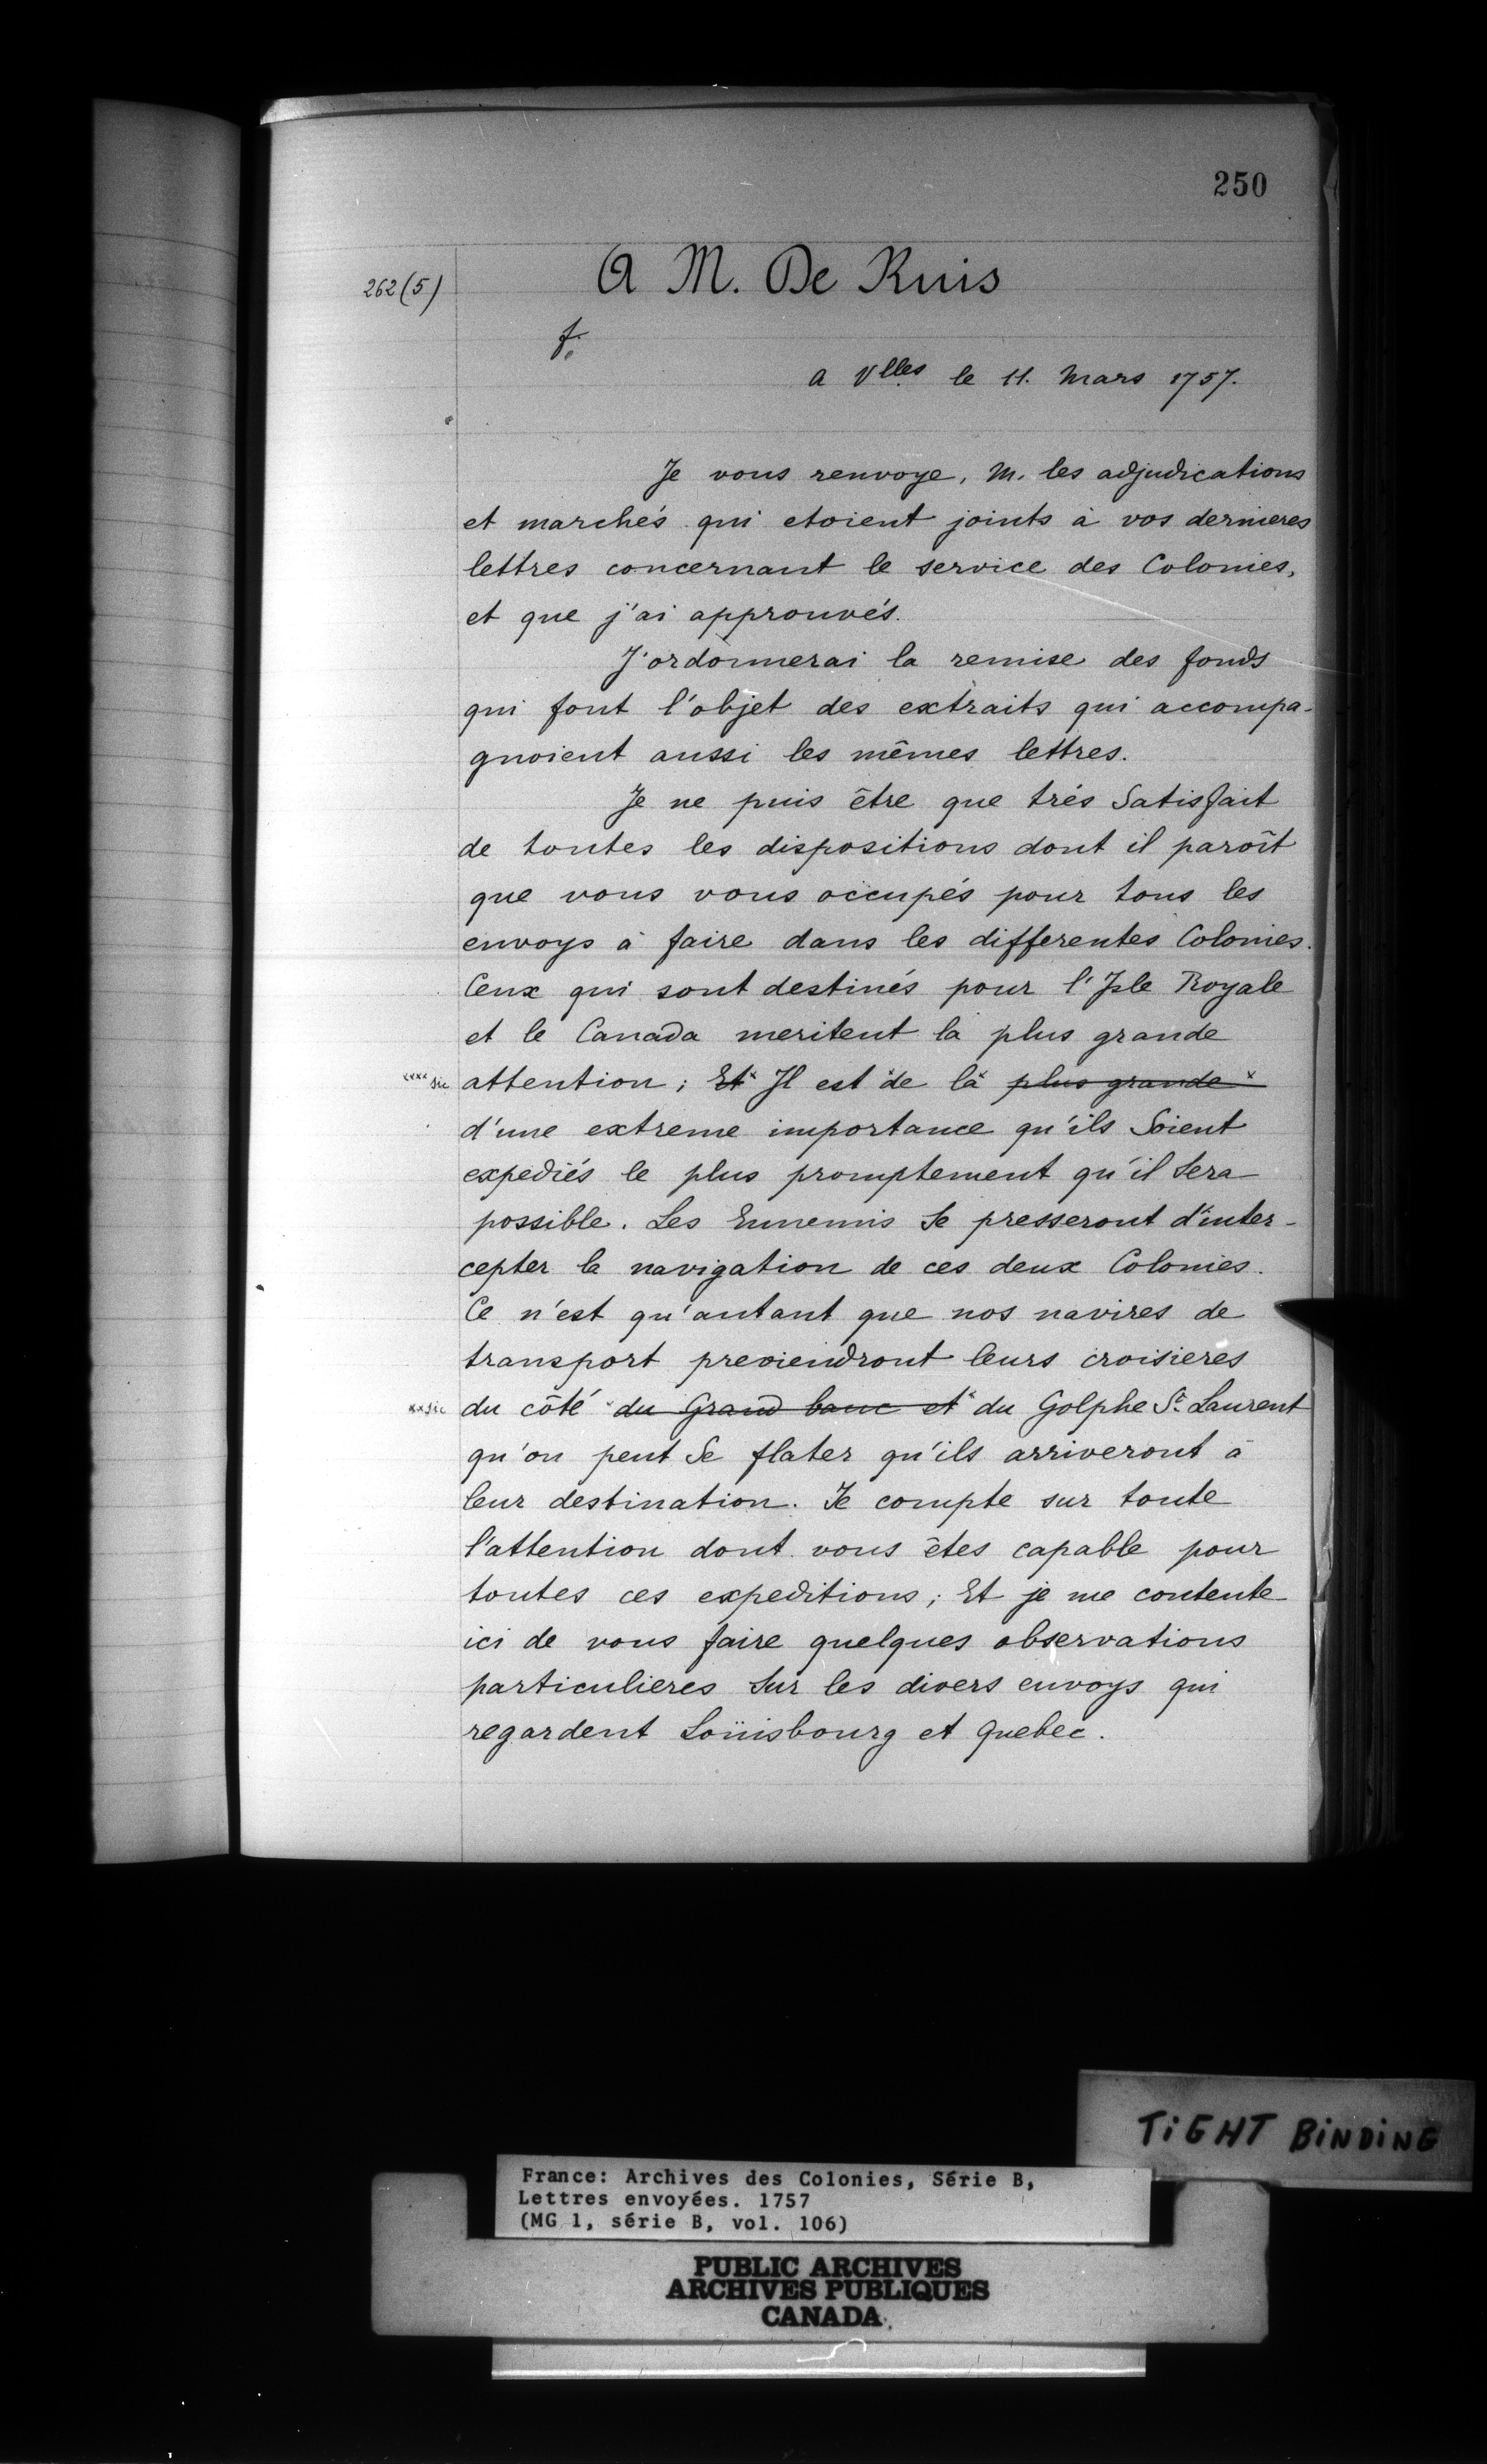 250
262 (5)
A M. De Ruis
f.
a Vlles le 11. Mars 1757.
Je vous renvoye, M. les adjudications
et marchés qui etoient joints à vos dernieres
lettres concernant le service des Colonies,
et que j'ai approuvés.
J'ordonnerai la remise des fonds
qui font l'objet des extraits qui accompa-
gnoient aussi les mêmes lettres.
Je ne puis être que trés Satisfait
de toutes les dispositions dont il paroît
que vous vous occupés pour tous les
envoys à faire dans les differentes Colonies.
Ceux qui sont destinés pour l'Isle Royale
et le Canada meritent la plus grande
xxxx sic attention ; Et x Il est x de la x plus grande x
d'une extreme importance qu'ils Soient
expediés le plus promptement qu'il Sera
possible. Les Ennemis Se presseront d'inter-
cepter la navigation de ces deux Colonies.
Ce n'est qu'autant que nos navires de
transport previendront leurs croisieres
xx sic du côté x du Grand banc et x du Golphe St. Laurent
qu'on peut Se flater qu'ils arriveront à
leur destination. Je compte sur toute
l'attention dont vous êtes capable pour
toutes ces expeditions ; Et je me contente
ici de vous faire quelques observations
particulieres Sur les divers envoys qui
regardent Loüisbourg et Quebec.
TIGHT BINDING
France: Archives des Colonies, Série B,
Lettres envoyées. 1757
(MG 1, série B, vol. 106)
PUBLIC ARCHIVES
ARCHIVES PUBLIQUES
CANADA